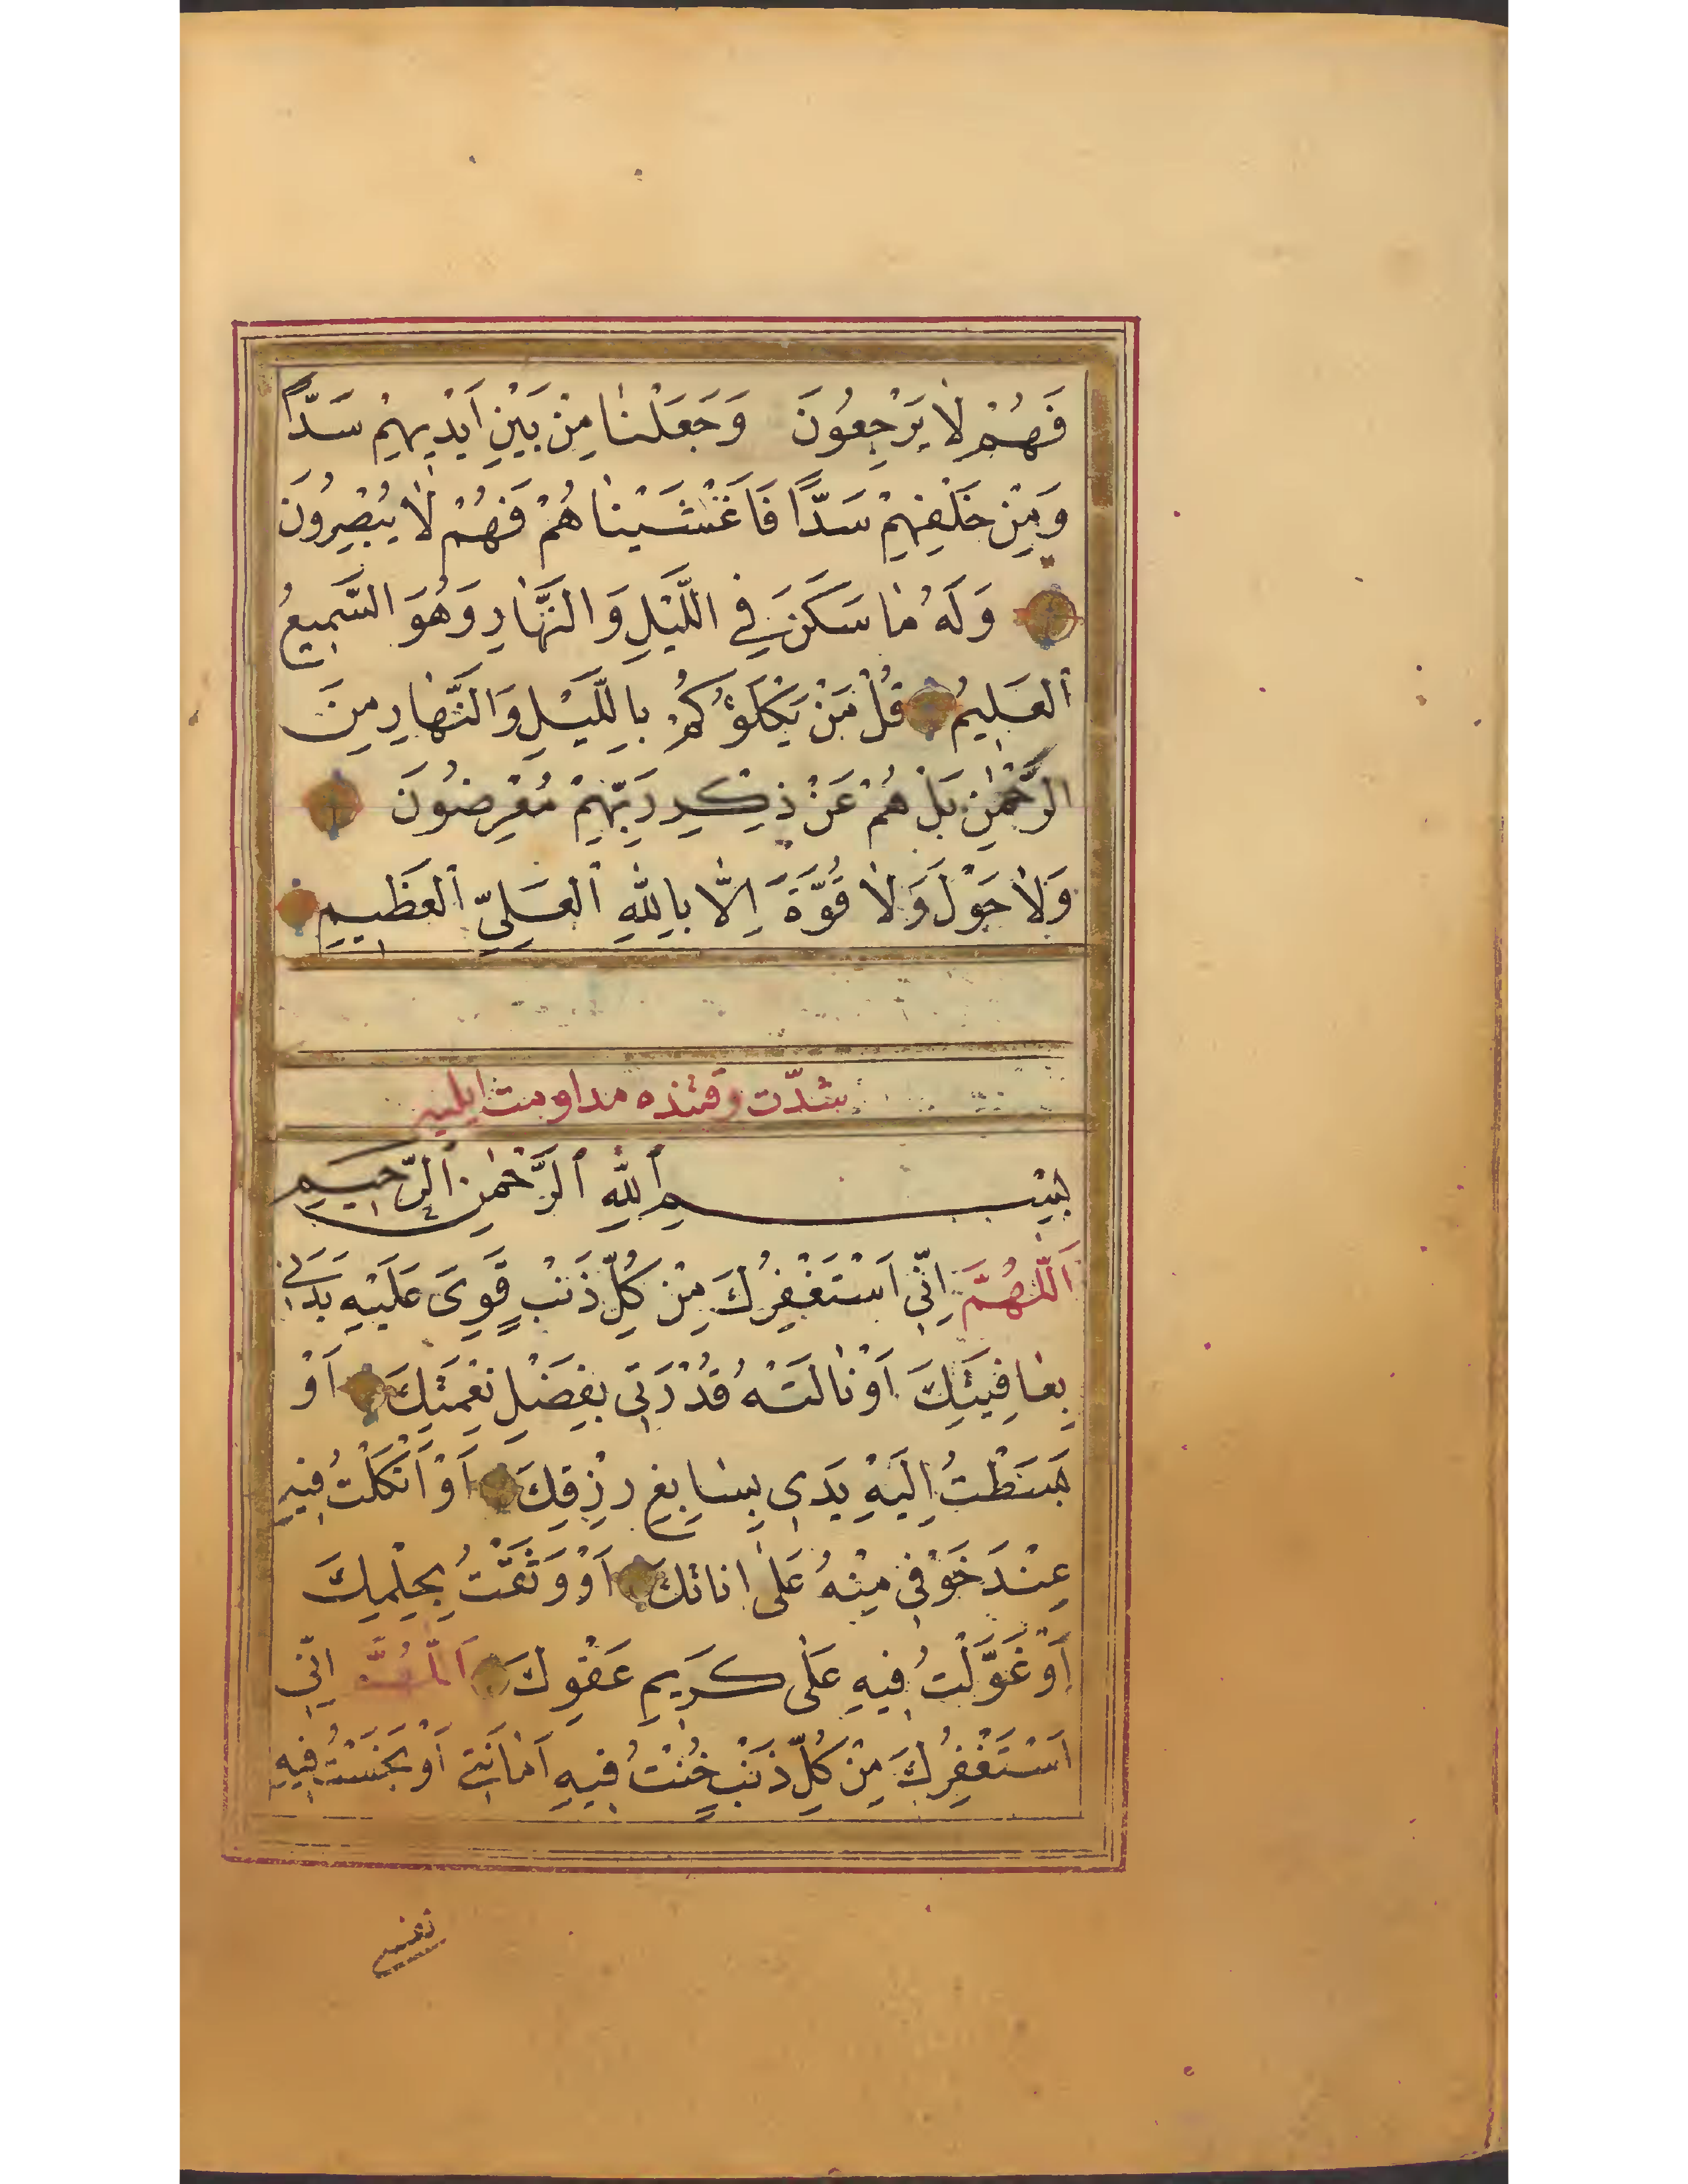 فَهُمْ لَا يَرْجِعُونَ وَجَعَلْنَا مِنْ بَيْنِ اَيْدِيهِمْ سَدًّا
وَمِنْ خَلْفِهِمْ سَدًّا فَاَغْشَيْنَاهُمْ فَهُمْ لَا يُبْصِرُونَ
وَلَهُ مَا سَكَنَ فِي اللَّيْلِ وَالنَّهَارِ وَهُوَ السَّمِيعُ
الْعَلِيمُ قُلْ مَنْ يَكْلَؤُكُمْ بِاللَّيْلِ وَالنَّهَارِ مِنَ
الرَّحْمٰنِ بَلْ هُمْ عَنْ ذِكْرِ رَبِّهِمْ مُعْرِضُونَ
وَلَا حَوْلَ وَلَا قُوَّةَ اِلَّا بِاللّٰهِ الْعَلِيِّ الْعَظِيمِ
شدّت وقتنده مداومت ايليه
بِسْمِ اللّٰهِ الرَّحْمٰنِ الرَّحِيمِ
اَللّٰهُمَّ اِنِّي اَسْتَغْفِرُكَ مِنْ كُلِّ ذَنْبٍ قَوِىَ عَلَيْهِ بَدَنِي
بِعَافِيَتِكَ اَوْ نَالَتْهُ قُدْرَتِي بِفَضْلِ نِعْمَتِكَ اَوْ
بَسَطْتُ اِلَيْهِ يَدِي بِسَابِغِ رِزْقِكَ اَوْ اَتَّكَلْتُ فِيهِ
عِنْدَ خَوْفِي مِنْهُ عَلَى اَنَاتِكَ اَوْ وَثَقْتُ بِحِلْمِكَ
اَوْ عَوَّلْتُ فِيهِ عَلَى كَرِيمِ عَفْوِكَ اَللّٰهُمَّ اِنِّي
اَسْتَغْفِرُكَ مِنْ كُلِّ ذَنْبٍ خُنْتُ فِيهِ اَمَانَتِي اَوْ بَخَسْتُ فِيهِ
نفسى